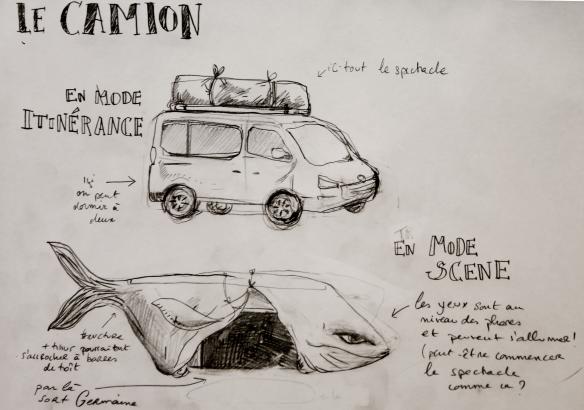 LE CAMION
EN MODE
ITINÉRANCE
ici tout le spectacle
ici
on peut
dormir à
deux
EN MODE
SCENE
les yeux sont au
niveau des phares
et peuvent s'allumer!
(peut-être commencer
le spectacle
comme ça?
structure
+ tissu pourraient
s'accrocher à barres
de toît
par là
sort Germaine